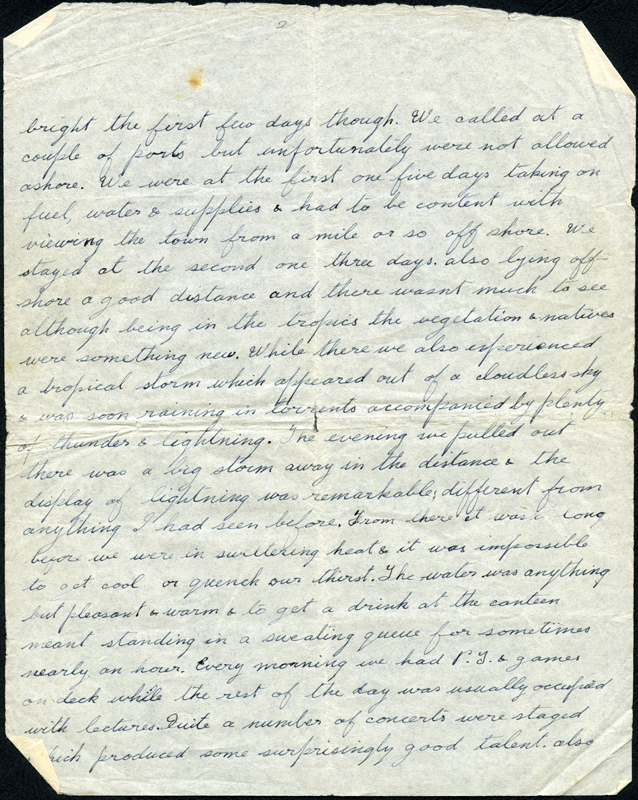 2
bright the first few days though. We called at a
couple of ports but unfortunately were not allowed
ashore. We were at the first one five days taking on
fuel, water & supplies & had to be content with
viewing the town from a mile or so off shore. We
stayed at the second one three days. also lying off-
shore a good distance and there wasnt much to see
although being in the tropics the vegetation & natives
were something new. While there we also experienced
a tropical storm which appeared out of a cloudless sky
& was soon raining in torrents accompanied by plenty
of thunder & lightning. The evening we pulled out
there was a big storm away in the distance & the
display of lightning was remarkable, different from
anything I had seen before. From there it was long
before we were in sweltering heat & it was impossible
to get cool or quench our thirst. The water was anything
but pleasant & warm & to get a drink at the canteen
meant standing in a sweating queue for sometimes
nearly an hour. Every morning we had P.T. & games
on deck while the rest of the day was usually occupied
with lectures. Quite a number of concerts were staged
which produced some surprisingly good talent. also